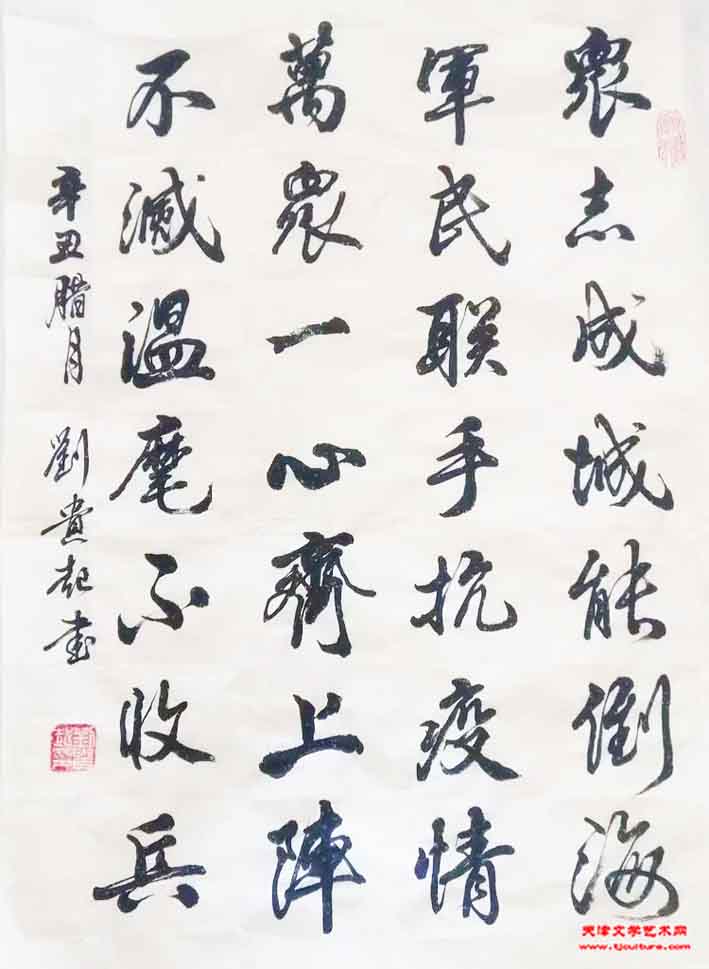 眾志成城能倒海
軍民联手抗疫情
萬眾一心齊上陣
不滅温麾不收兵
辛丑腊月 劉貴起书
天津文学艺术网
www.tjculture.com